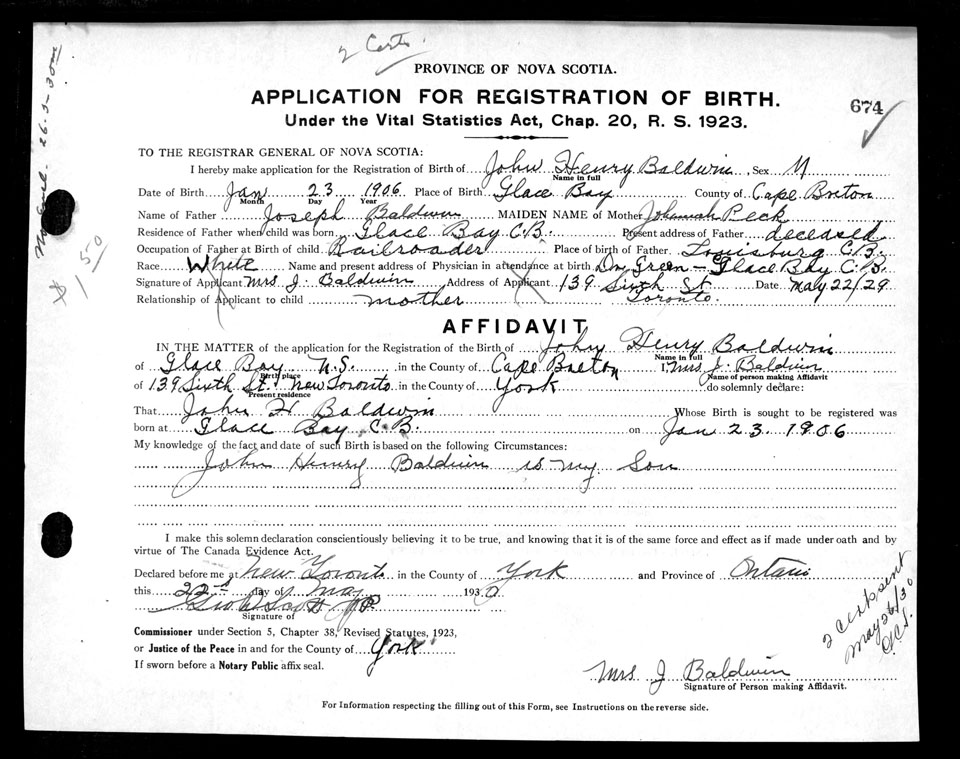 2 Certs.
PROVINCE OF NOVA SCOTIA.
APPLICATION FOR REGISTRATION OF BIRTH.
674
Under the Vital Statistics Act, Chap. 20, R. S. 1923.
26.5-30
$1.50
TO THE REGISTRAR GENERAL OF NOVA SCOTIA:
I hereby make application for the Registration of Birth of John Henry Baldwin Sex M
Name in full
Date of Birth Jan 23 1906 Place of Birth Glace Bay County of Cape Breton
Month Day Year
Name of Father Joseph Baldwin MAIDEN NAME of Mother Johannah Peck
Residence of Father when child was born Glace Bay C.B. Present address of Father deceased
Occupation of Father at Birth of child Railroader Place of birth of Father Louisburg C.B.
Race White Name and present address of Physician in attendance at birth Dr Green - Glace Bay C.B.
Signature of Applicant Mrs J. Baldwin Address of Applicant 139 Sixth St Date May 22/29
Relationship of Applicant to child mother Toronto.
AFFIDAVIT
IN THE MATTER of the application for the Registration of the Birth of John Henry Baldwin
Name in full
of Glace Bay N.S. in the County of Cape Breton I, Mrs J. Baldwin
Birth place
Name of person making Affidavit
of 139 Sixth St. New Toronto in the County of York do solemnly declare:
Present residence
That John H Baldwin Whose Birth is sought to be registered was
born at Glace Bay C.B. on Jan 23 1906
My knowledge of the fact and date of such Birth is based on the following Circumstances:
John Henry Baldwin is my Son
I make this solemn declaration conscientiously believing it to be true, and knowing that it is of the same force and effect as if made under oath and by
virtue of The Canada Evidence Act.
Declared before me at New Toronto in the County of York and Province of Ontario
this 22nd day of May 1930
J.P.
Signature of
Commissioner under Section 5, Chapter 38, Revised Statutes, 1923,
or Justice of the Peace in and for the County of York
If sworn before a Notary Public affix seal.
2 Certs sent
May 26/30
Mrs J Baldwin
Signature of Person making Affidavit.
For Information respecting the filling out of this Form, see Instructions on the reverse side.